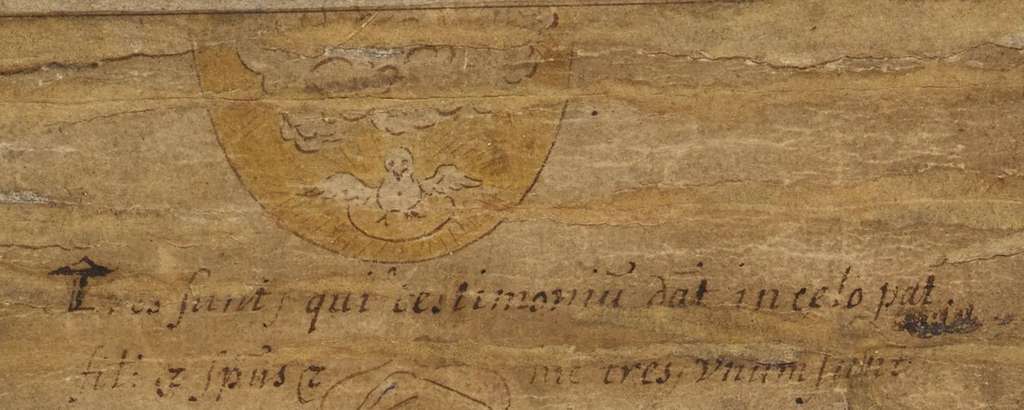 Tres sunt, qui testimoniū dāt in celo pat
fili: & spūs & me tres, vnum sunt